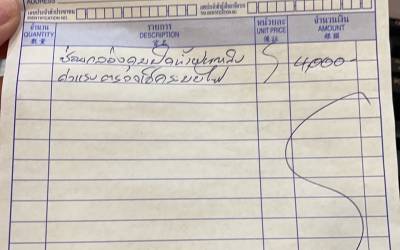 ADDRESS
เลขประจำตัวประชาชน เลขประจำตัวผู้เสียภาษีอากร
IDENTIFICATION NO.
จำนวน รายการ หน่วยละ จำนวนเงิน
QUANTITY DESCRIPTION UNIT PRICE AMOUNT
數量
ซ่อมกล่องคุม 4,000-
ค่าแรง ตรวจเช็คระบบไฟ